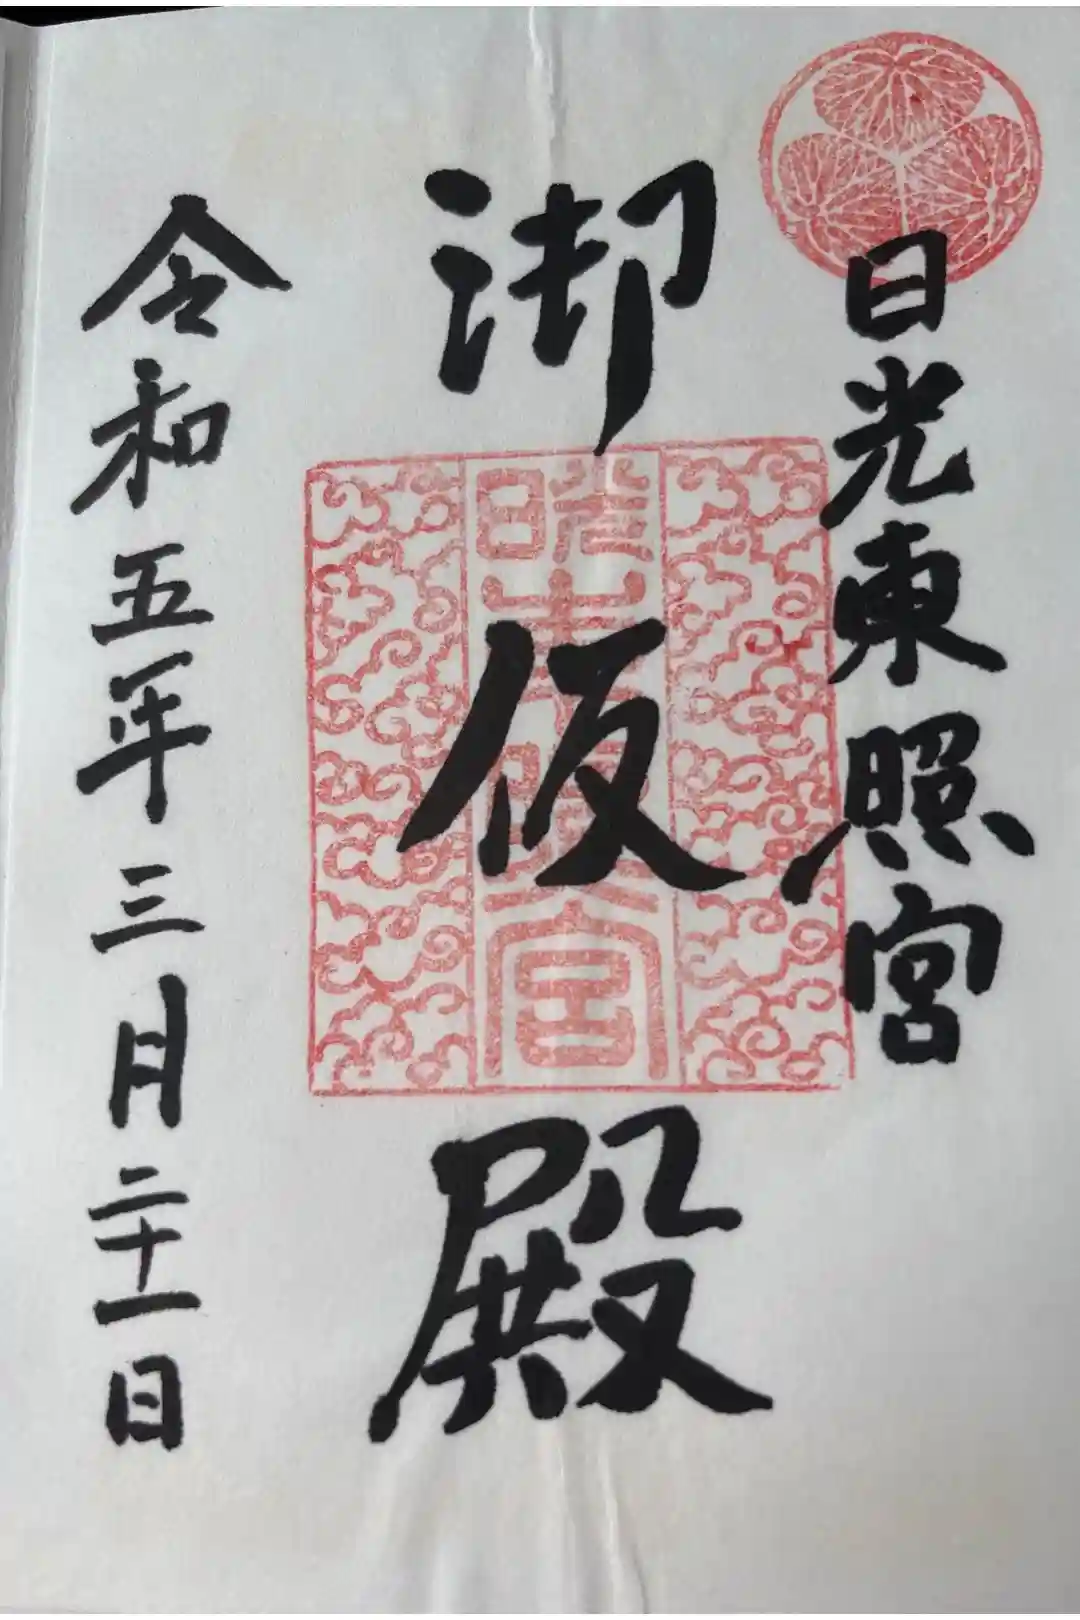 日光東照宮
御仮殿
晃山東照宮
令和五年三月二十一日